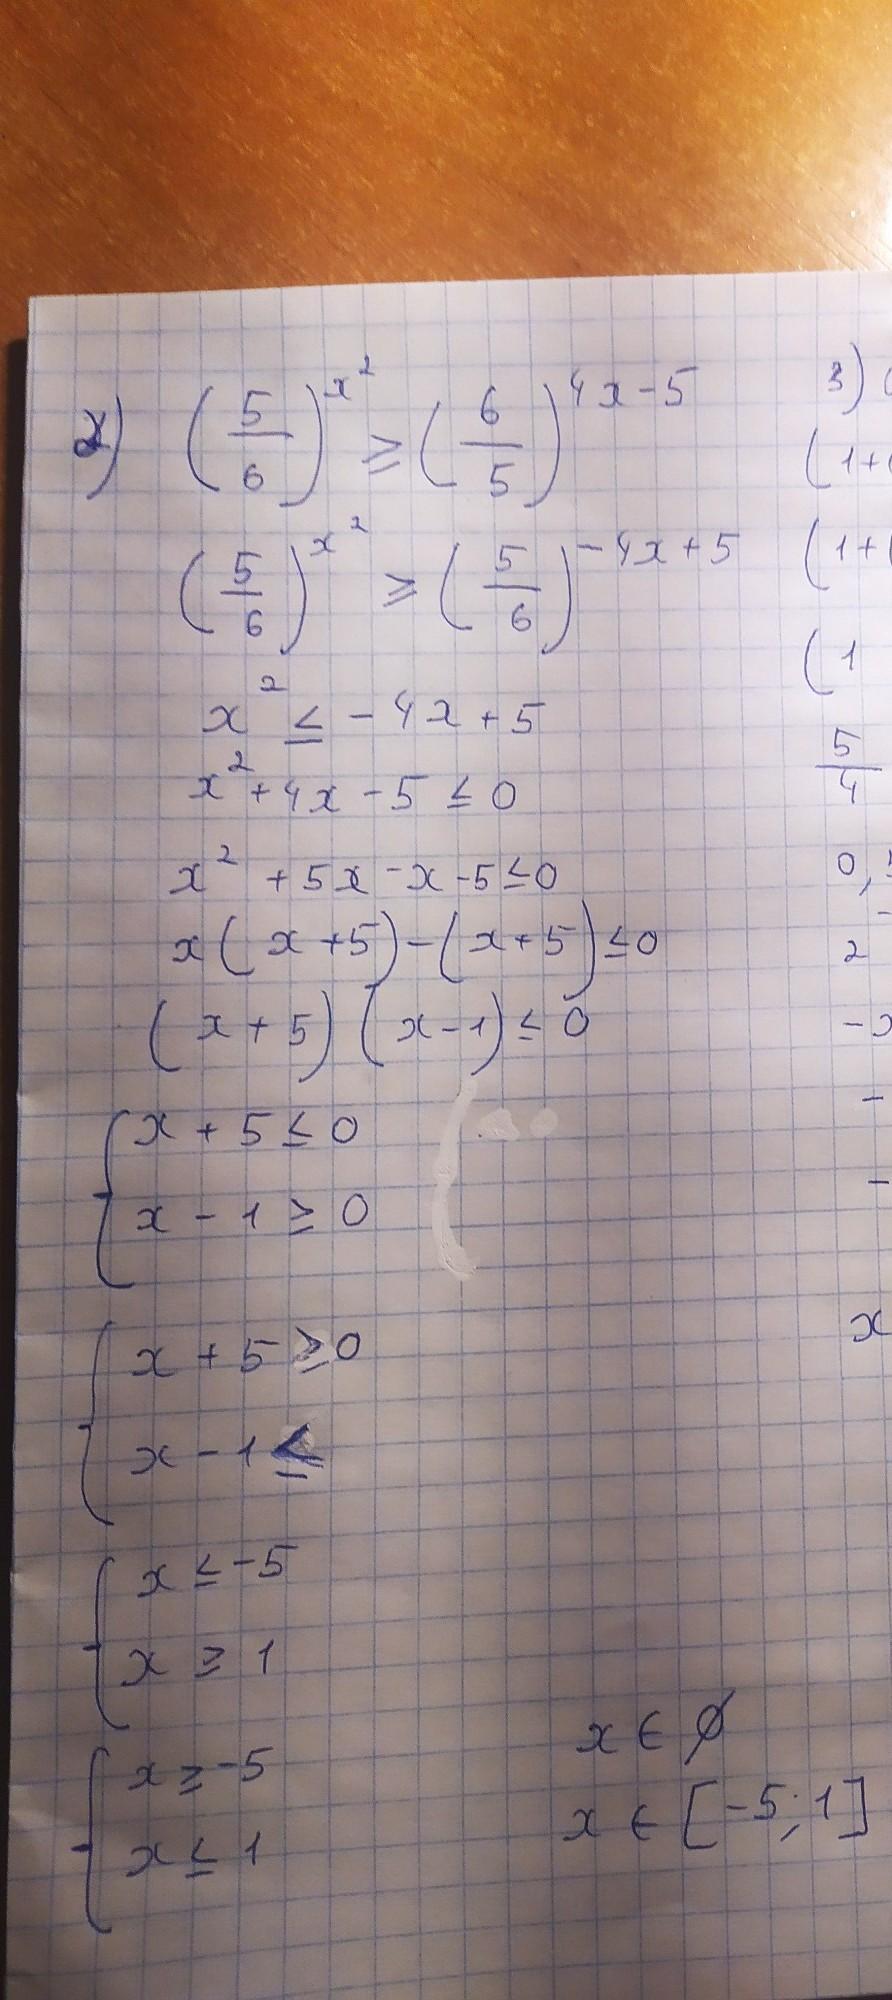 2) (5/6)^x² ≥ (6/5)^4x-5
(5/6)^x² ≥ (5/6)^-4x+5
x² ≤ -4x+5
x²+4x-5 ≤ 0
x² +5x-x-5≤0
x(x+5)-(x+5)≤0
(x+5)(x-1)≤ 0
{ x+5≤0
x-1≥0
{ x+5≥0
x-1≤
{ x≤-5
x≥1
{ x≥-5
x≤1
x∈∅
x∈[-5;1]
3) (
(1+
(1+
(1
5/4
0,
2
-x
-
-
x